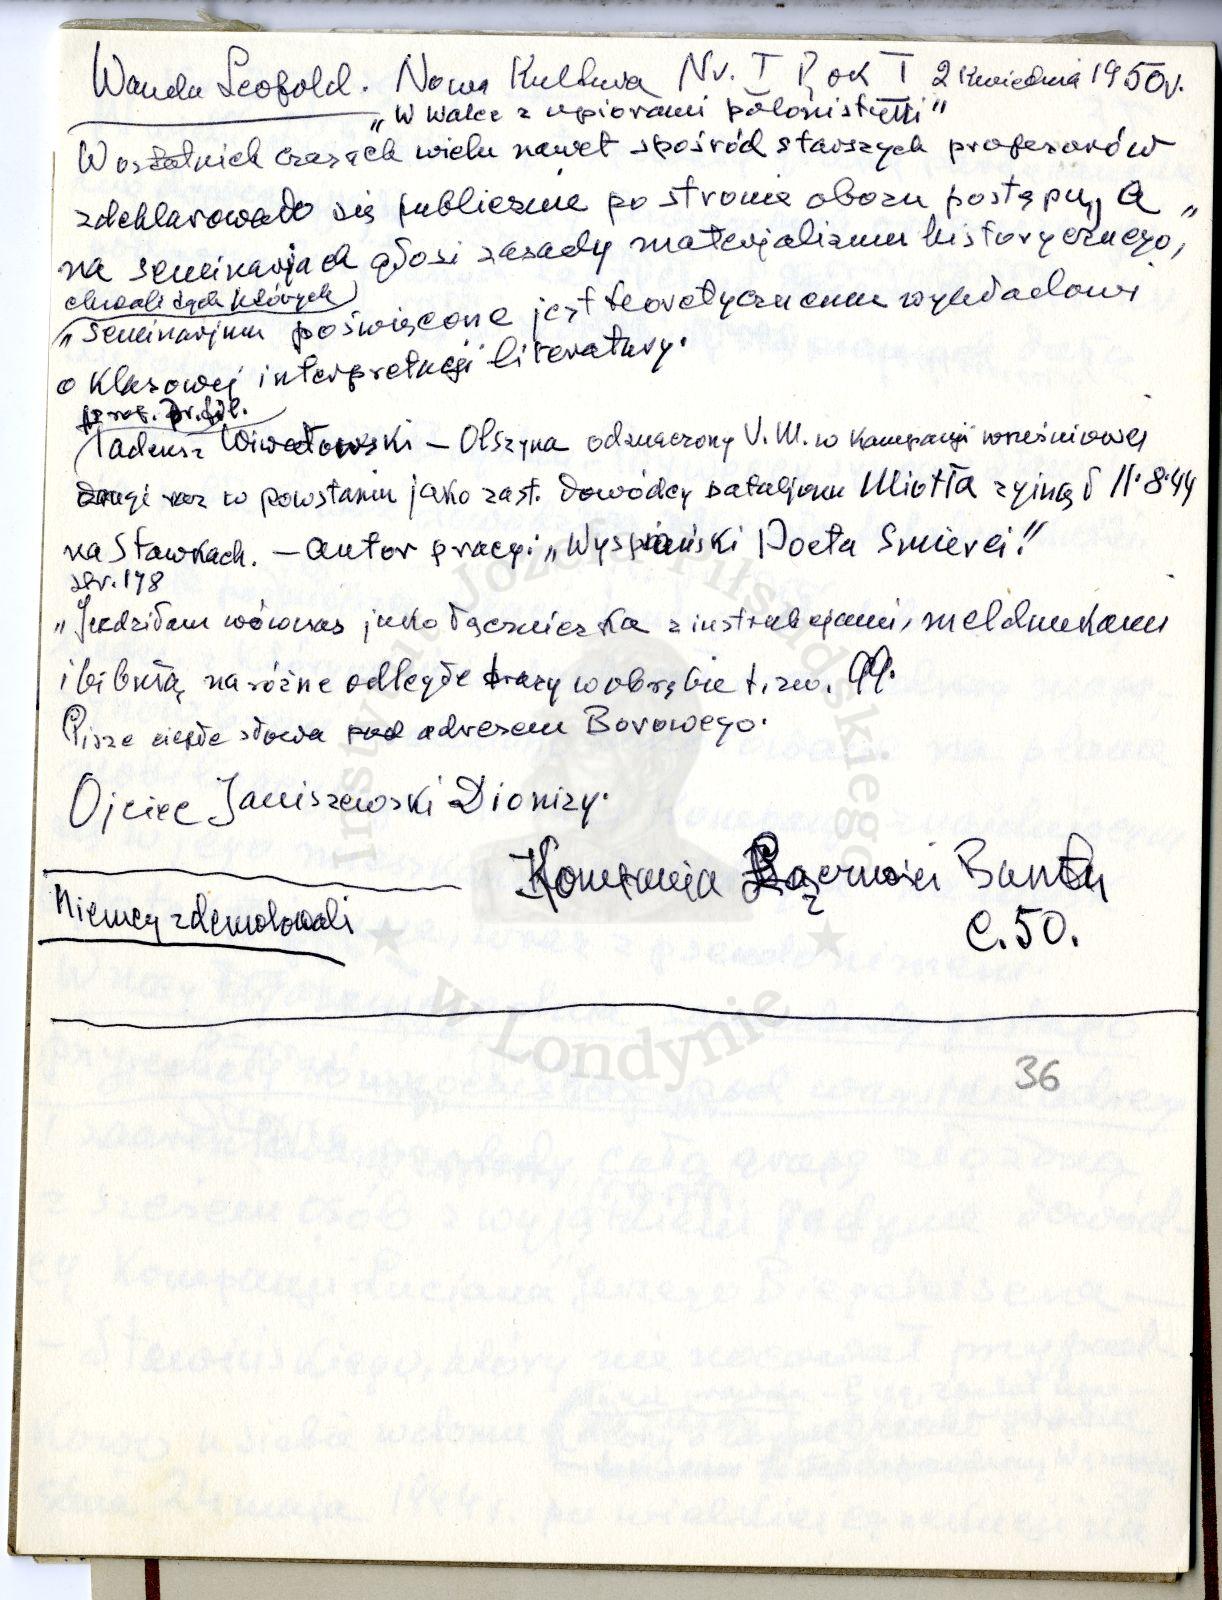 Wanda Leopold. Nowa Kultura Nr. I Rok I 2 Kwiednia 1950r.
"W walce z upiorami polonistyki"
W ostatnich czasach wielu nawet spośród starszych profesorów
zdeklarowało się publicznie po stronie obozu postępu, a "
na seminarjach głosi zasady materjalizmu historycznego,
chwali tych których
"seminarjum poświęcone jest teoretycznemu wykładowi
o klasowej interpretacji literatury.
prof. Dr. fil.
Tadeusz Wiwatowski – Olszyna odznaczony V.M. w kampanji wrześniowej
drugi raz w powstaniu jako zast. Dowódcy bataljonu Miotła zginął 11.8.44
na Stawkach. – autor pracy: "Wyspiański Poeta Smierci."
str. 178
"Jeździłam wówczas jako łączniczka z instrukcjami, meldunkami
i bibułą na różne odległe trasy w obrębie t. zw. GG.
Pisze ciepłe słowa pod adresem Borowego.
Ojciec Janiszewski Dionizy.
Kompanja Łączności Buntu
C.50.
Niemcy zdemolowali
36
Instytut Józefa Piłsudskiego
w Londynie